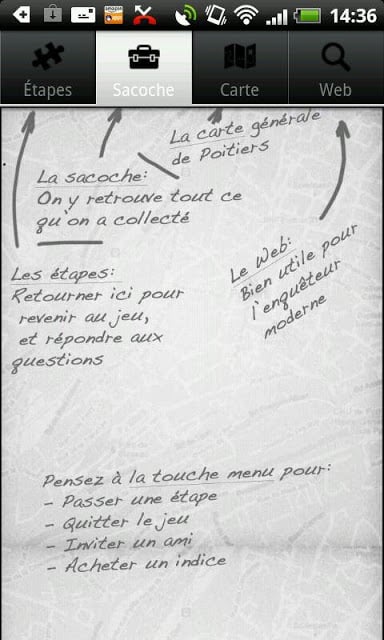 14:36
Étapes
Sacoche
Carte
Web
La carte générale
de Poitiers
La sacoche:
On y retrouve tout ce
qu'on a collecté
Le Web:
Bien utile pour
l'enquêteur
moderne
Les étapes:
Retourner ici pour
revenir au jeu,
et répondre aux
questions
Pensez à la touche menu pour:
- Passer une étape
- Quitter le jeu
- Inviter un ami
- Acheter un indice